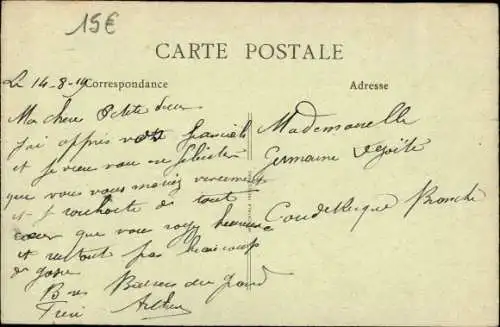 15€
CARTE POSTALE
Le 14-8-19
Correspondance
Adresse
Ma chère Petite Sœur
j'ai appris
et je vien vou en féliciter
que vous vous mariez
et souhaite de tout
cœur que vous soyez heureuse
et surtout pas beaucoup
de gosse
Bons Baisers du grand
Frère Arthur
Mademoiselle
Germaine
Coudekerque Branche